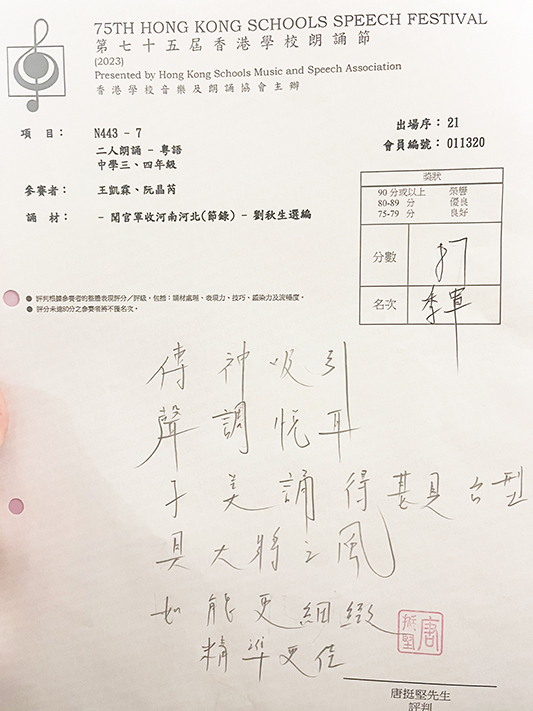 75TH HONG KONG SCHOOLS SPEECH FESTIVAL
第七十五屆香港學校朗誦節
(2023)
Presented by Hong Kong Schools Music and Speech Association
香港學校音樂及朗誦協會主辦
項目： N443 - 7
出場序： 21
二人朗誦 - 粵語
會員編號： 011320
中學三、四年級
參賽者： 王凱霖、阮晶芮
誦材： - 聞官軍收河南河北(節錄) - 劉秋生選編
獎狀
90 分或以上 榮譽
80-89 分 優良
75-79 分 良好
分數
名次 季軍
● 評判根據參賽者的整體表現評分／評級，包括：誦材處理、表現力、技巧、感染力及流暢度。
● 評分未達80分之參賽者將不獲名次。
傳神吸引
聲調悅耳
子美誦得甚具台型
具大將之風
如能更細緻
精準更佳
唐挺堅
唐挺堅先生
評判